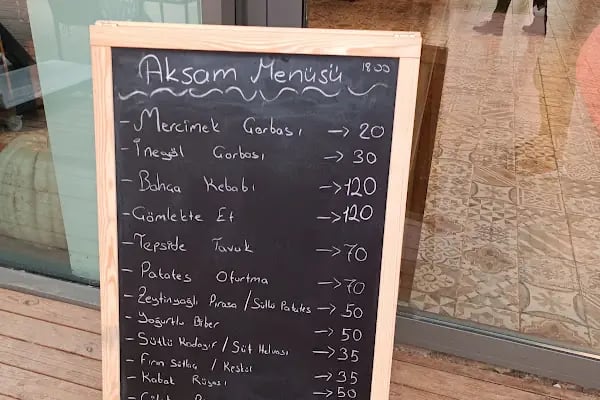 Akşam Menüsü 18:00
- Mercimek Çorbası → 20
- İnegöl Çorbası → 30
- Bahça Kebabı → 120
- Gömlekte Et → 120
- Tepside Tavuk → 70
- Patates Oturtma → 70
- Zeytinyağlı Pırasa / Sütlü Patates → 50
- Yoğurtlu Biber → 50
- Sütlü Kadayıf / Süt Helvası → 35
- Fırın Sütlaç / Keşkül → 35
- Kabak Rüyası → 50